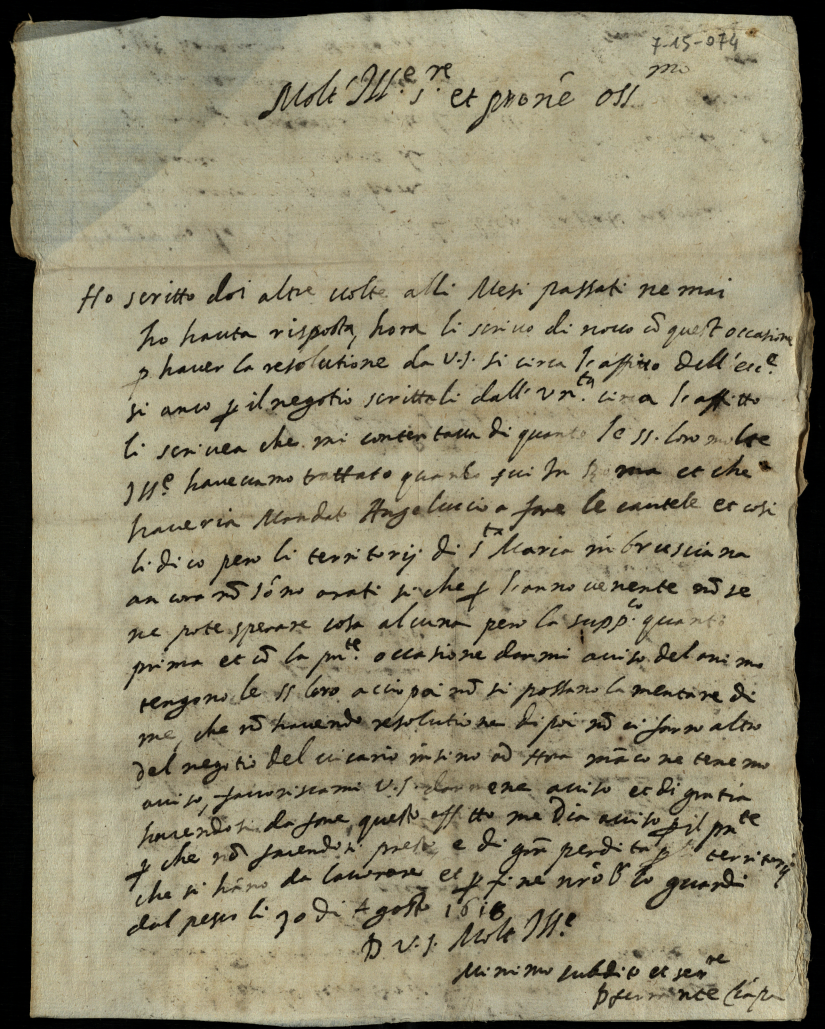 7-15-074
Molt' Ill.e s.re et prone oss.mo
Ho scritto doi altre volte alli Mesi passati ne mai
ho hauta risposta, hora li scrivo di novo cō quest'occasione
p haver la resolutione da V.S. si circa l'affitto dell'
si anco p il negotio scrittoli dall' circa l'affitto
li scrivea che mi contentava di quanto le SS. loro molte
Ill.e havevamo trattato quando fui in Roma et che
haveria Mandat Angeluccio a fare le cautele et cosi
li dico pero li territorij di S.ta Maria in bresciana
ancora nō sōno arati si che p l'anno venente nō se
ne pote sperare cosa alcuna pero la supp.co quanto
prima et cō la pnte. occasione darmi aviso del animo
tengono le SS loro accio poi nō si possano lamentare di
me, che nō havendo resolutione dipoi nō ci farro altro
del negotio del vicario insino ad Hora māco ne tenemo
aviso, favoriscami V.S. darmene aviso et di gratia
havendosi da fare questo affitto me Dia aviso p il pnte
p che nō facendosi presto e di grā perdita p li territorij
che si hāno da lavorare et p fine nrō S. lo guardi
dal li 30 di Agosto 1618
D V.S. Molt Ill.e
Minimo subdito et ser.re